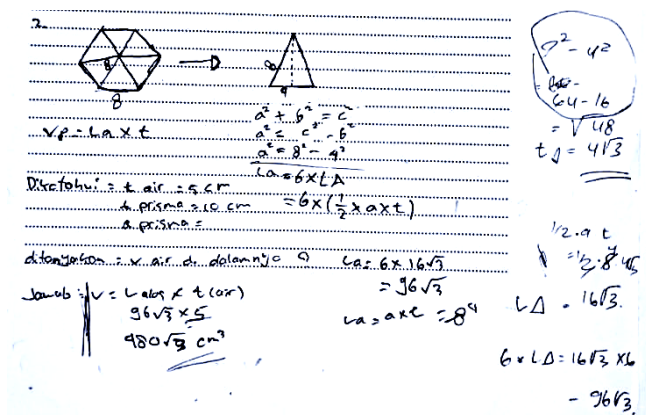 2.
8
8
8
4
a² + b² = c²
a² = c² - b²
a² = 8² - 4²
Vp = La x t
La = 6 x LΔ
= 6 x (½ x a x t)
Diketahui = t air = 5 cm
t prisma = 10 cm
a prisma =
ditanyakan = v air di dalamnya ?
La = 6 x 16√3
= 96√3
Jawab = V = L alas x t (air)
96√3 x 5
480√3 cm³
La = a x t = 8
8² - 4²
64 - 16
= √48
t = 4√3
½ . a t
= ½ . 8 4√3
LΔ = 16√3.
6 x LΔ = 16√3 x 6
= 96√3